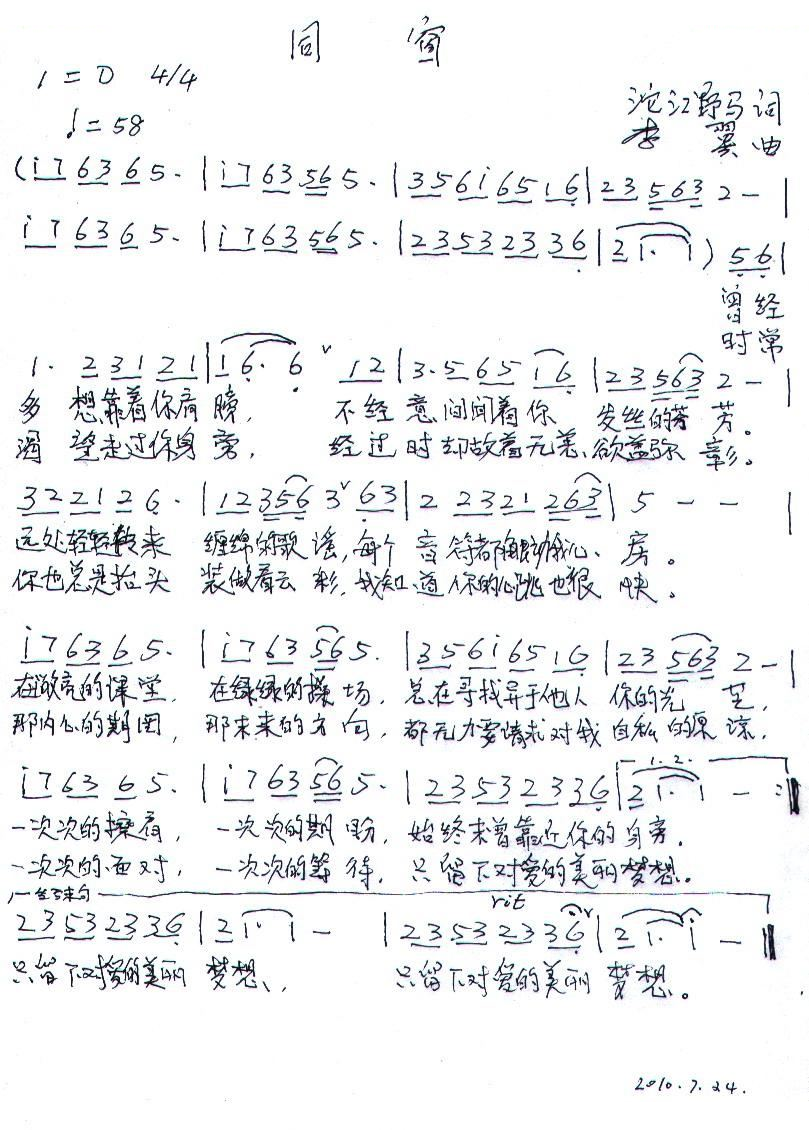 同 窗
1 = D 4/4
♩= 58
沱江野马 词
李 翼 曲
( i 7 6 3 6 5 · | i 7 6 3 5 6 5 · | 3 5 6 i 6 5 1 6 | 2 3 5 6 3 2 – |
i 7 6 3 6 5 · | i 7 6 3 5 6 5 · | 2 3 5 3 2 3 3 6 | 2 1 · 1 ) 5 6 |
曾经
时常
1 · 2 3 1 2 1 | 1 6 · 6 ∨ 1 2 | 3 · 5 6 5 1 6 | 2 3 5 6 3 2 – |
多 想靠着你肩 膀, 不经 意间闻着你 发丝的芬 芳。
渴 望走过你身 旁, 经过 时却故着无恙、欲盖弥 彰。
3 2 2 1 2 6 · | 1 2 3 5 6 3 ∨ 6 3 | 2 2 3 2 1 2 6 3 | 5 – – |
远处轻轻转来 缠绵的歌 谣, 每个 音符都触动我心 房。
你也总是抬头 装做看云 彩, 我知 道你的心跳也很 快。
i 7 6 3 6 5 · | i 7 6 3 5 6 5 · | 3 5 6 i 6 5 1 6 | 2 3 5 6 3 2 – |
在敞亮的课堂, 在绿绿的操 场, 总在寻找异于他人 你的光 芒,
那内心的期图, 那未来的方 向, 都无力要请求对我 自私的原 谅,
i 7 6 3 6 5 · | i 7 6 3 5 6 5 · | 2 3 5 3 2 3 3 6 | 1. 2. 2 1 · 1 – :‖
一次次的擦肩, 一次次的期 盼, 始终未曾靠近你的 身旁。
一次次的面对, 一次次的等 待, 只留下对爱的美丽 梦想。
结束句 rit
2 3 5 3 2 3 3 6 | 2 1 · 1 – | 2 3 5 3 2 3 3 6 ∨ | 2 1 · i – ‖
只留下对爱的美丽 梦想、, 只留下对爱的美丽 梦想。
2010.7.24.